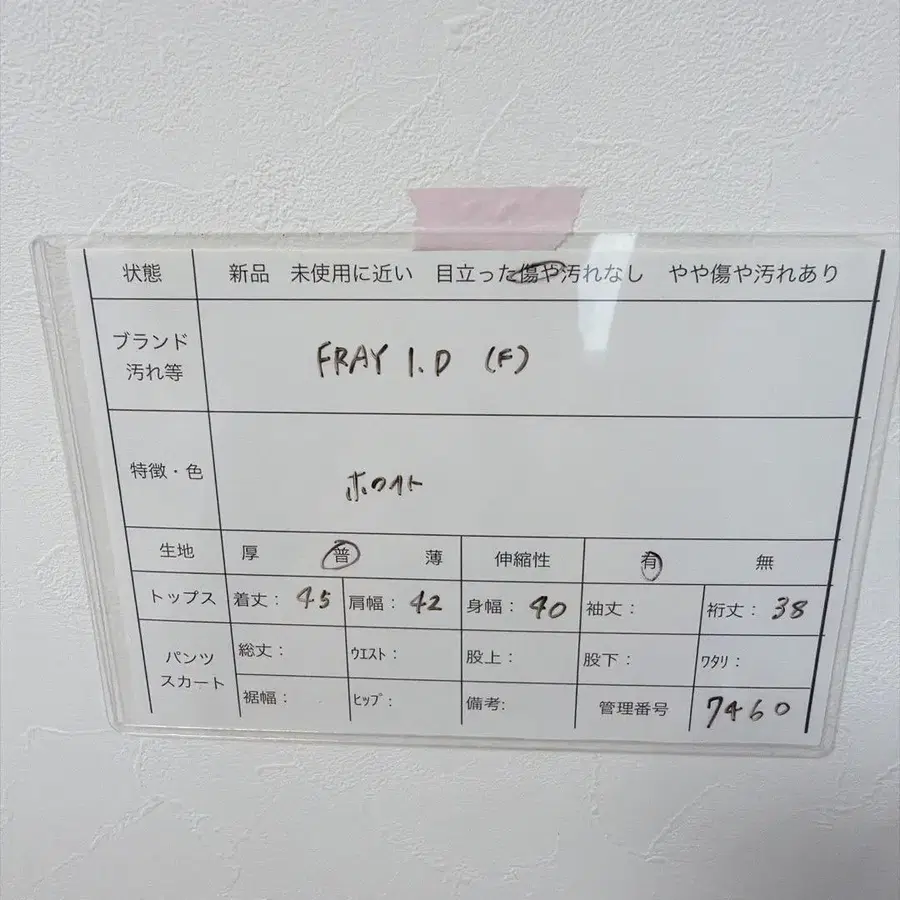 状態 新品 未使用に近い 目立った傷や汚れなし やや傷や汚れあり
ブランド
汚れ等
FRAY I.D (F)
特徴・色
ホワイト
生地 厚 普 薄 伸縮性 有 無
トップス 着丈: 45 肩幅: 42 身幅: 40 袖丈: 裄丈: 38
パンツ
スカート
総丈: ウエスト: 股上: 股下: ワタリ:
裾幅: ヒップ: 備考: 管理番号 7460